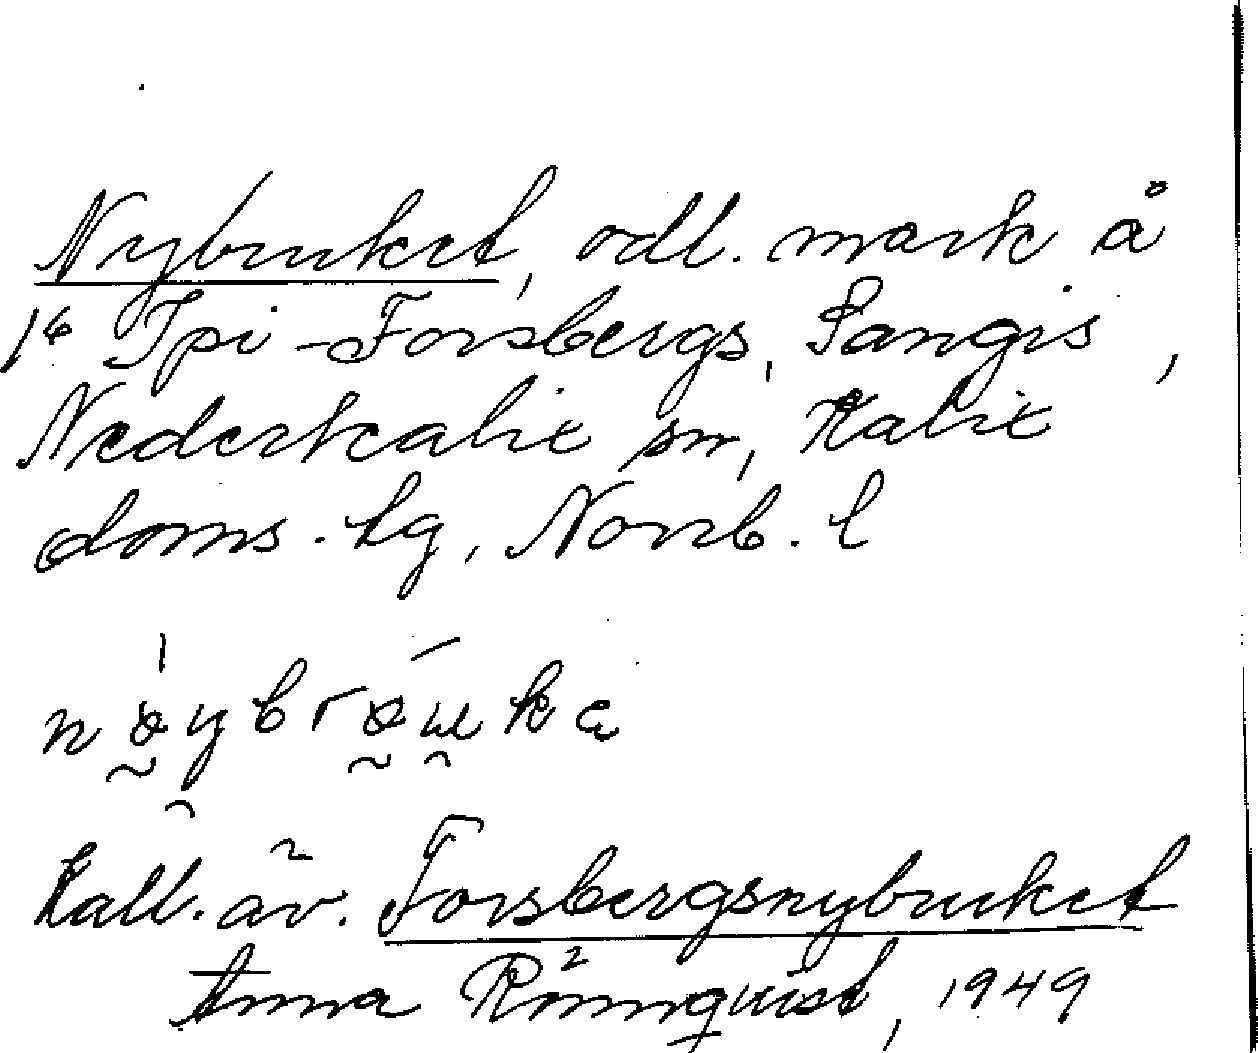 Nybruket, odl. mark å
1⁶ Ipi-Forsbergs, Sangis,
Nederkalix sn, Kalix
doms. lg, Norrb. l
Kall. äv. Forsbergsnybruket
Anna Rönnquist, 1949